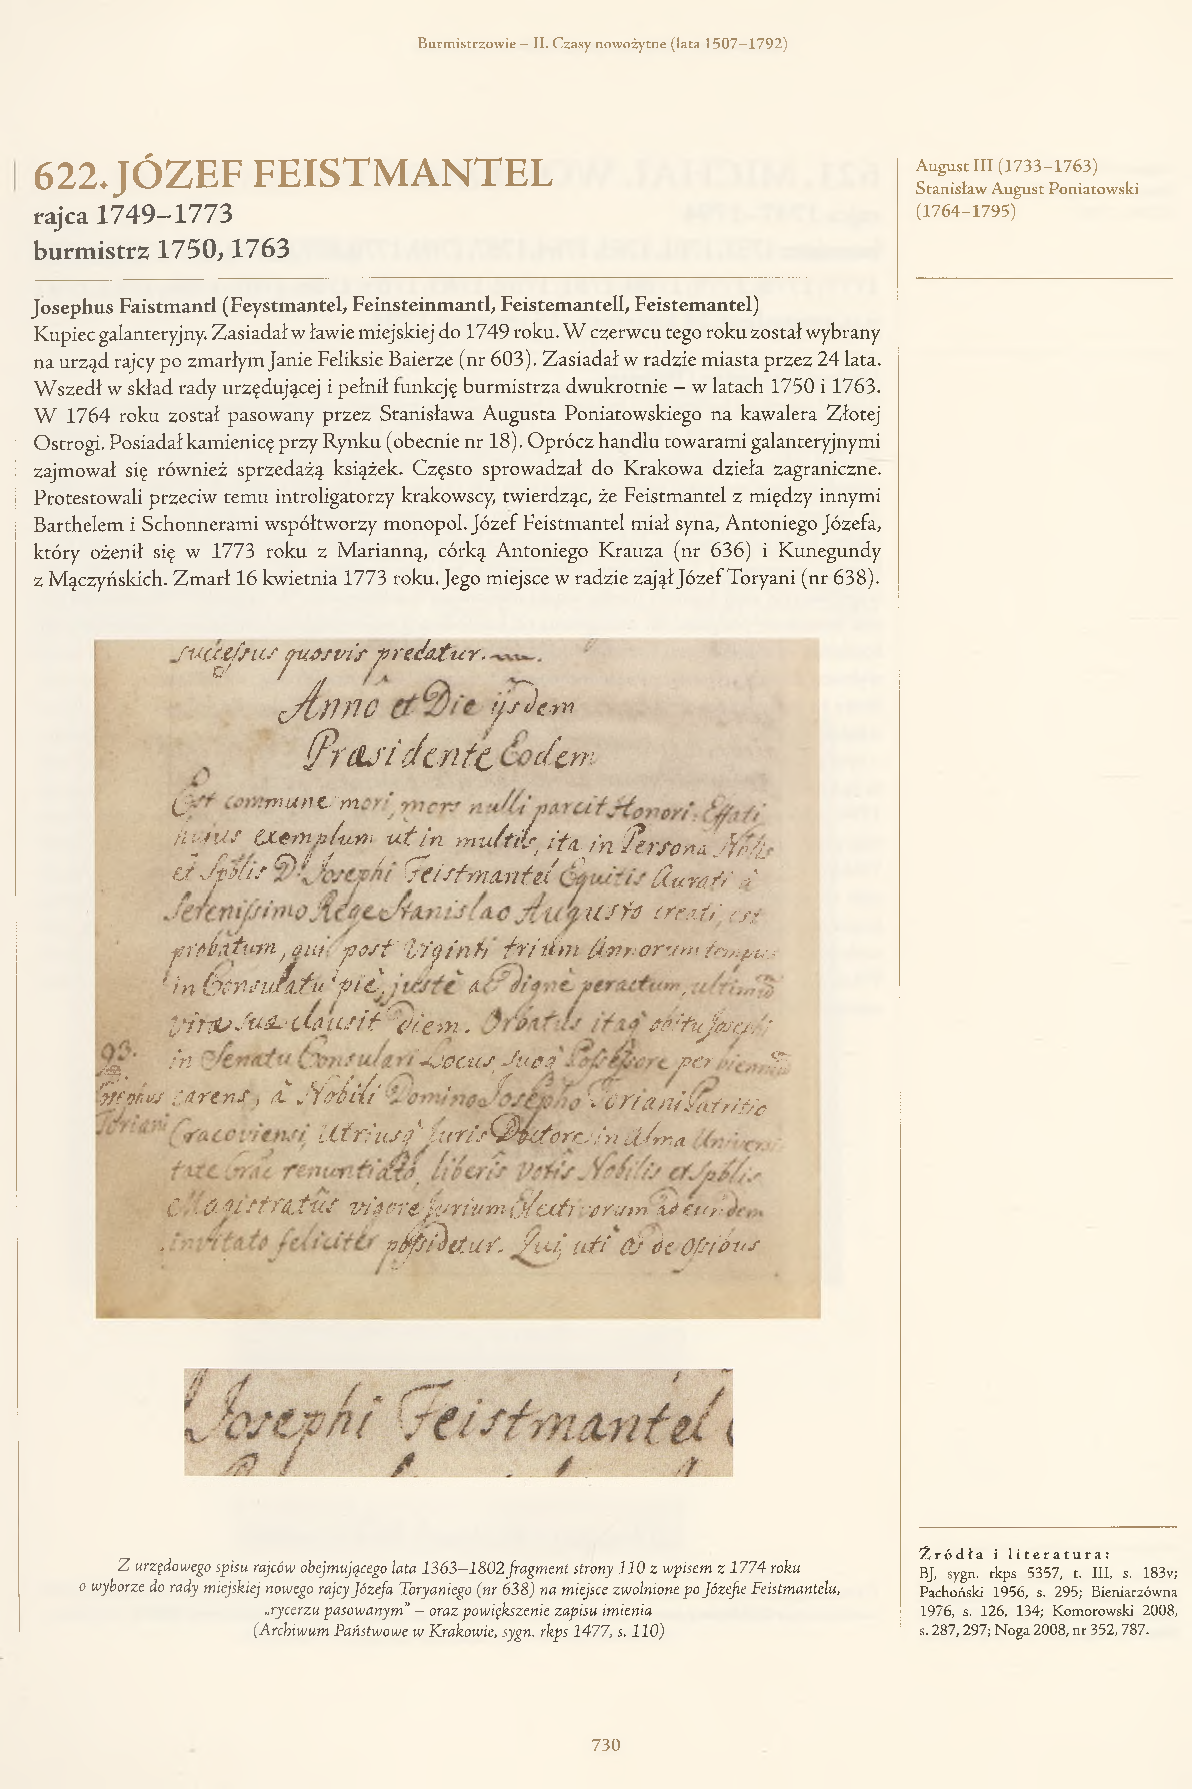 Burmistrzowie – II. Czasy nowożytne (lata 1507–1792)
622. JÓZEF FEISTMANTEL
rajca 1749–1773
burmistrz 1750, 1763
August III (1733–1763)
Stanisław August Poniatowski
(1764–1795)
Josephus Faistmantl (Feystmantel, Feinsteinmantl, Feistemantell, Feistemantel)
Kupiec galanteryjny. Zasiadał w ławie miejskiej do 1749 roku. W czerwcu tego roku został wybrany
na urząd rajcy po zmarłym Janie Feliksie Baierze (nr 603). Zasiadał w radzie miasta przez 24 lata.
Wszedł w skład rady urzędującej i pełnił funkcję burmistrza dwukrotnie – w latach 1750 i 1763.
W 1764 roku został pasowany przez Stanisława Augusta Poniatowskiego na kawalera Złotej
Ostrogi. Posiadał kamienicę przy Rynku (obecnie nr 18). Oprócz handlu towarami galanteryjnymi
zajmował się również sprzedażą książek. Często sprowadzał do Krakowa dzieła zagraniczne.
Protestowali przeciw temu introligatorzy krakowscy, twierdząc, że Feistmantel z między innymi
Barthelem i Schonnerami współtworzy monopol. Józef Feistmantel miał syna, Antoniego Józefa,
który ożenił się w 1773 roku z Marianną, córką Antoniego Krauza (nr 636) i Kunegundy
z Mączyńskich. Zmarł 16 kwietnia 1773 roku. Jego miejsce w radzie zajął Józef Toryani (nr 638).
successus quosvis predatur.
Anno et Die ijsdem
Præsidente Eodem
Est commune mori, mors nulli parcit Honori. Effati
hujus exemplum ut in multis, ita in Persona Nobis
et Spblis D. Josephi Feistmantel Equitis Aurati à
Serenissimo Rege Stanislao Augusto creati, est
probatum, qui post Viginti trium Annorum tempus
in Consulatu piè, justè ac Dignè peractum, ultimũ
vitæ suæ clausit Diem. Orbatus itaq obitu Josephi
93. in Senatu Consulari Locus suoq Possessore per bienniũ
Josephus carens, à Nobili Domino Josepho Toriani Patritio
Toriani Cracoviensi, Utriusq Juris Doctore, in Alma Universi
tate Crac renuntiato, liberis votis Nobilis et Spblis
Magistratûs vigore Jurium Electivorum ad eundem
invitato feliciter possidetur. Qui uti de opibus
Josephi Feistmantel
Z urzędowego spisu rajców obejmującego lata 1363–1802 fragment strony 110 z wpisem z 1774 roku
o wyborze do rady miejskiej nowego rajcy Józefa Toryaniego (nr 638) na miejsce zwolnione po Józefie Feistmantelu,
„rycerzu pasowanym” – oraz powiększenie zapisu imienia
(Archiwum Państwowe w Krakowie, sygn. rkps 1477, s. 110)
Źródła i literatura:
BJ, sygn. rkps 5357, t. III, s. 183v;
Pachoński 1956, s. 295; Bieniarzówna
1976, s. 126, 134; Komorowski 2008,
s. 287, 297; Noga 2008, nr 352, 787.
730